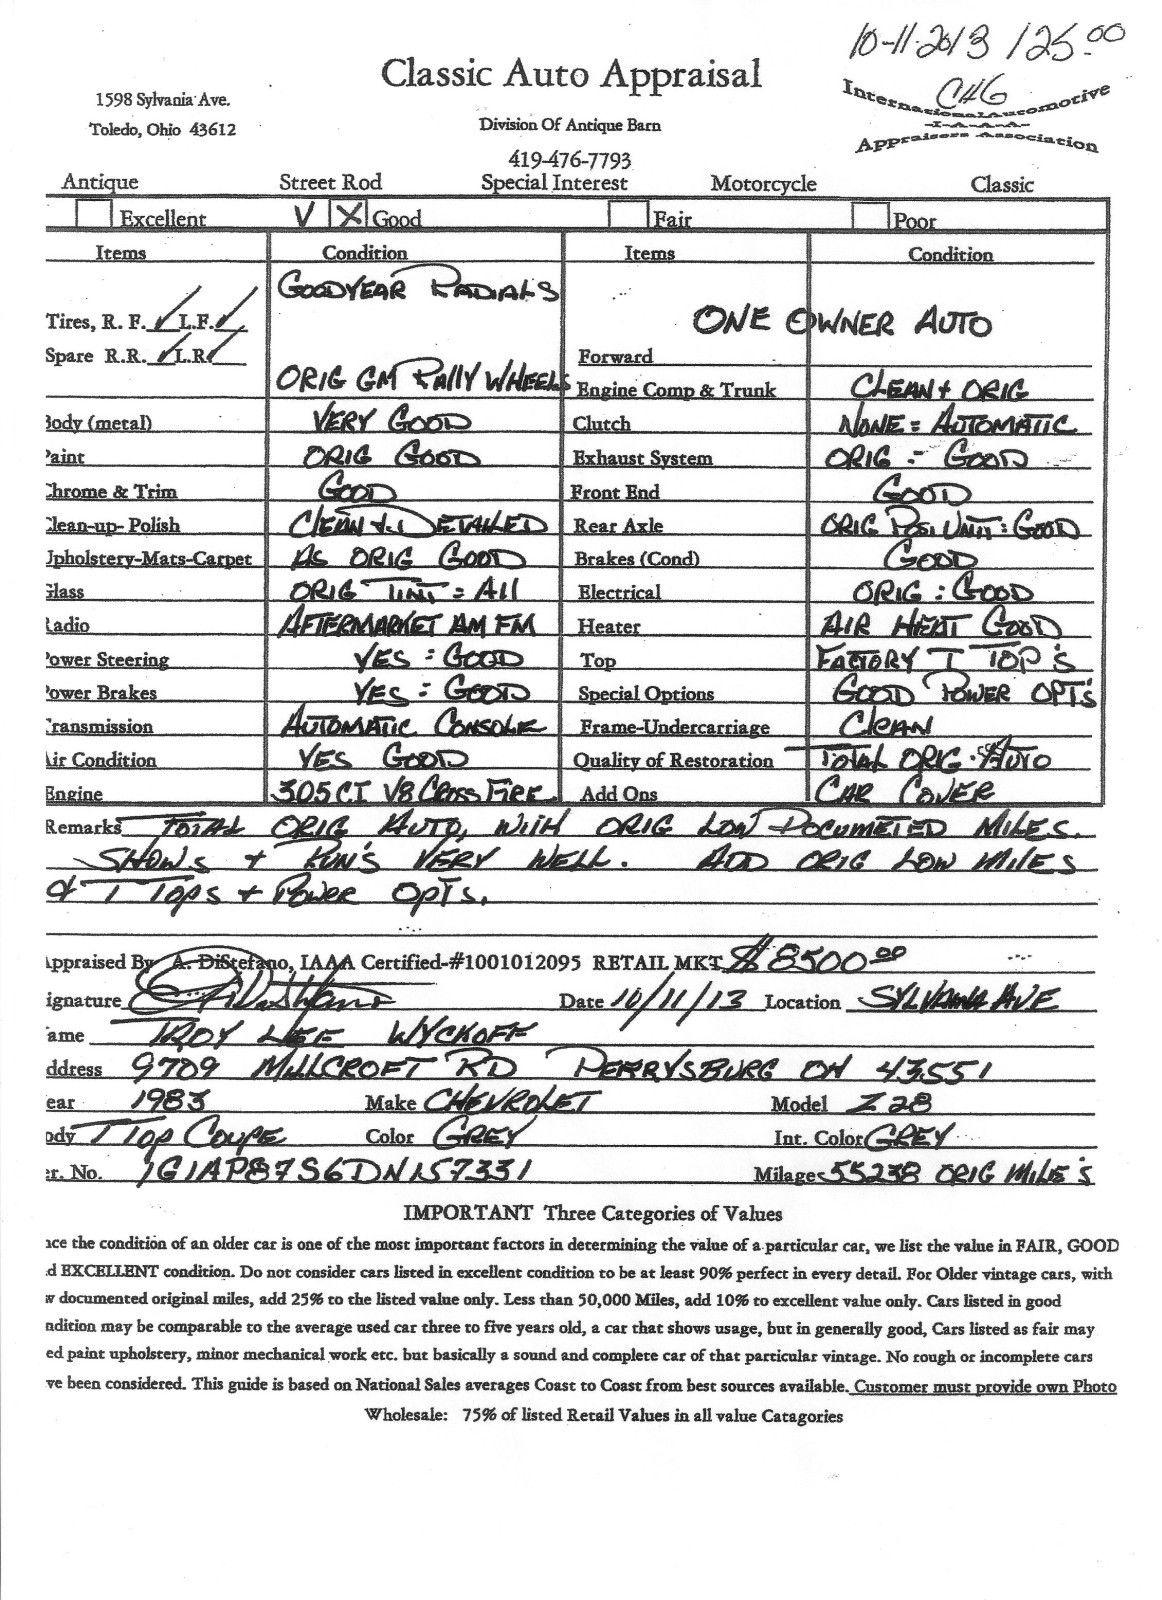 10-11-2013 125.00
CHG
Classic Auto Appraisal
1598 Sylvania Ave.
Toledo, Ohio 43612
Division Of Antique Barn
419-476-7793
International Automotive
-I-A-A-A-
Appraisers Association
Antique Street Rod Special Interest Motorcycle Classic
Excellent V X Good Fair Poor
Items Condition Items Condition
GOODYEAR RADIALS
Tires, R. F. L.F. ONE OWNER AUTO
Spare R.R. L.R. Forward
ORIG GM RALLY WHEELS Engine Comp & Trunk CLEAN + ORIG
Body (metal) VERY GOOD Clutch NONE = AUTOMATIC
Paint ORIG GOOD Exhaust System ORIG - GOOD
Chrome & Trim GOOD Front End GOOD
Clean-up- Polish CLEAN & DETAILED Rear Axle ORIG POSI UNIT : GOOD
Upholstery-Mats-Carpet AS ORIG GOOD Brakes (Cond) GOOD
Glass ORIG TINT = All Electrical ORIG : GOOD
Radio AFTERMARKET AM FM Heater AIR HEAT GOOD
Power Steering YES = GOOD Top FACTORY T TOP'S
Power Brakes YES = GOOD Special Options GOOD POWER OPT'S
Transmission AUTOMATIC CONSOLE Frame-Undercarriage CLEAN
Air Condition YES GOOD Quality of Restoration TOTAL ORIG. AUTO
Engine 305 CI V8 CROSS FIRE Add Ons CAR COVER
Remarks TOTAL ORIG AUTO, WITH ORIG LOW DOCUMETED MILES.
SHOWS + RUN'S VERY WELL. ADD ORIG LOW MILES
& T TOPS + POWER OPTS.
Appraised By A. DiStefano, IAAA Certified-#1001012095 RETAIL MKT $8500.00
ignature Date 10/11/13 Location SYLVANIA AVE
ame TROY LEE WYCKOFF
ddress 9709 MILLCROFT RD PERRYSBURG OH 43551
ear 1983 Make CHEVROLET Model Z28
ody T TOP COUPE Color GREY Int. Color GREY
er. No. 1G1AP87S6DN157331 Milage 55238 ORIG MILE'S
IMPORTANT Three Categories of Values
nce the condition of an older car is one of the most important factors in determining the value of a particular car, we list the value in FAIR, GOOD
d EXCELLENT condition. Do not consider cars listed in excellent condition to be at least 90% perfect in every detail. For Older vintage cars, with
w documented original miles, add 25% to the listed value only. Less than 50,000 Miles, add 10% to excellent value only. Cars listed in good
ndition may be comparable to the average used car three to five years old, a car that shows usage, but in generally good, Cars listed as fair may
ed paint upholstery, minor mechanical work etc. but basically a sound and complete car of that particular vintage. No rough or incomplete cars
ve been considered. This guide is based on National Sales averages Coast to Coast from best sources available. Customer must provide own Photo
Wholesale: 75% of listed Retail Values in all value Catagories